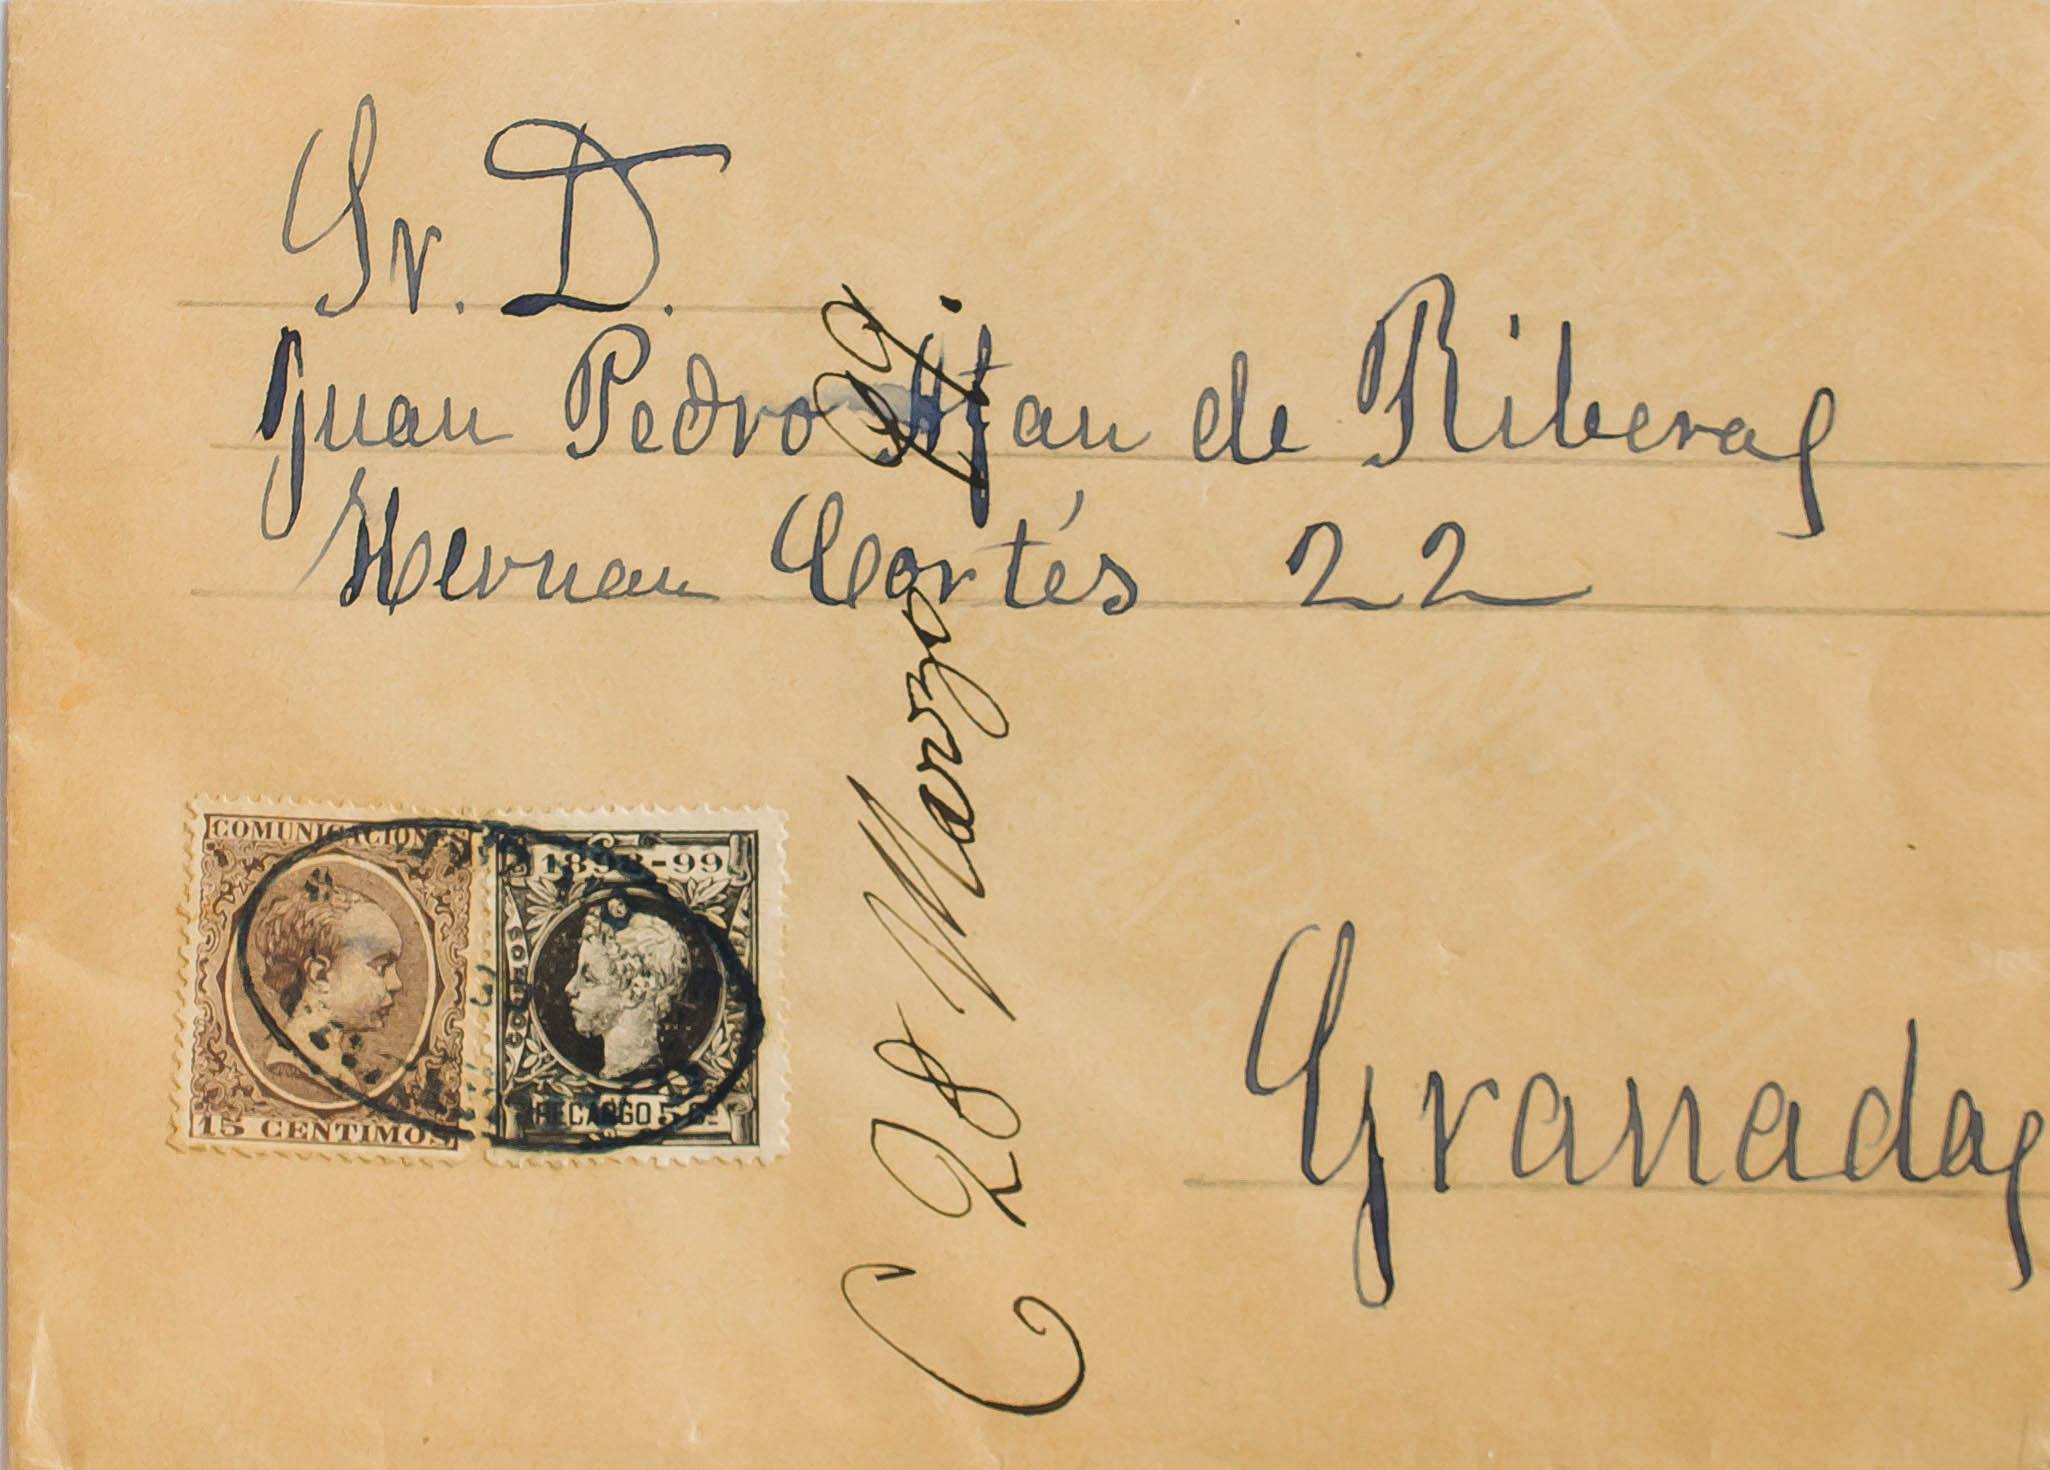 Sr. D.
Juan Pedro Afan de Ribera
Hernan Cortés 22
Granada
C 28 Marzo 99
COMUNICACIONES
15 CENTIMOS
1898-99
CORREOS
RECARGO 5 Cs